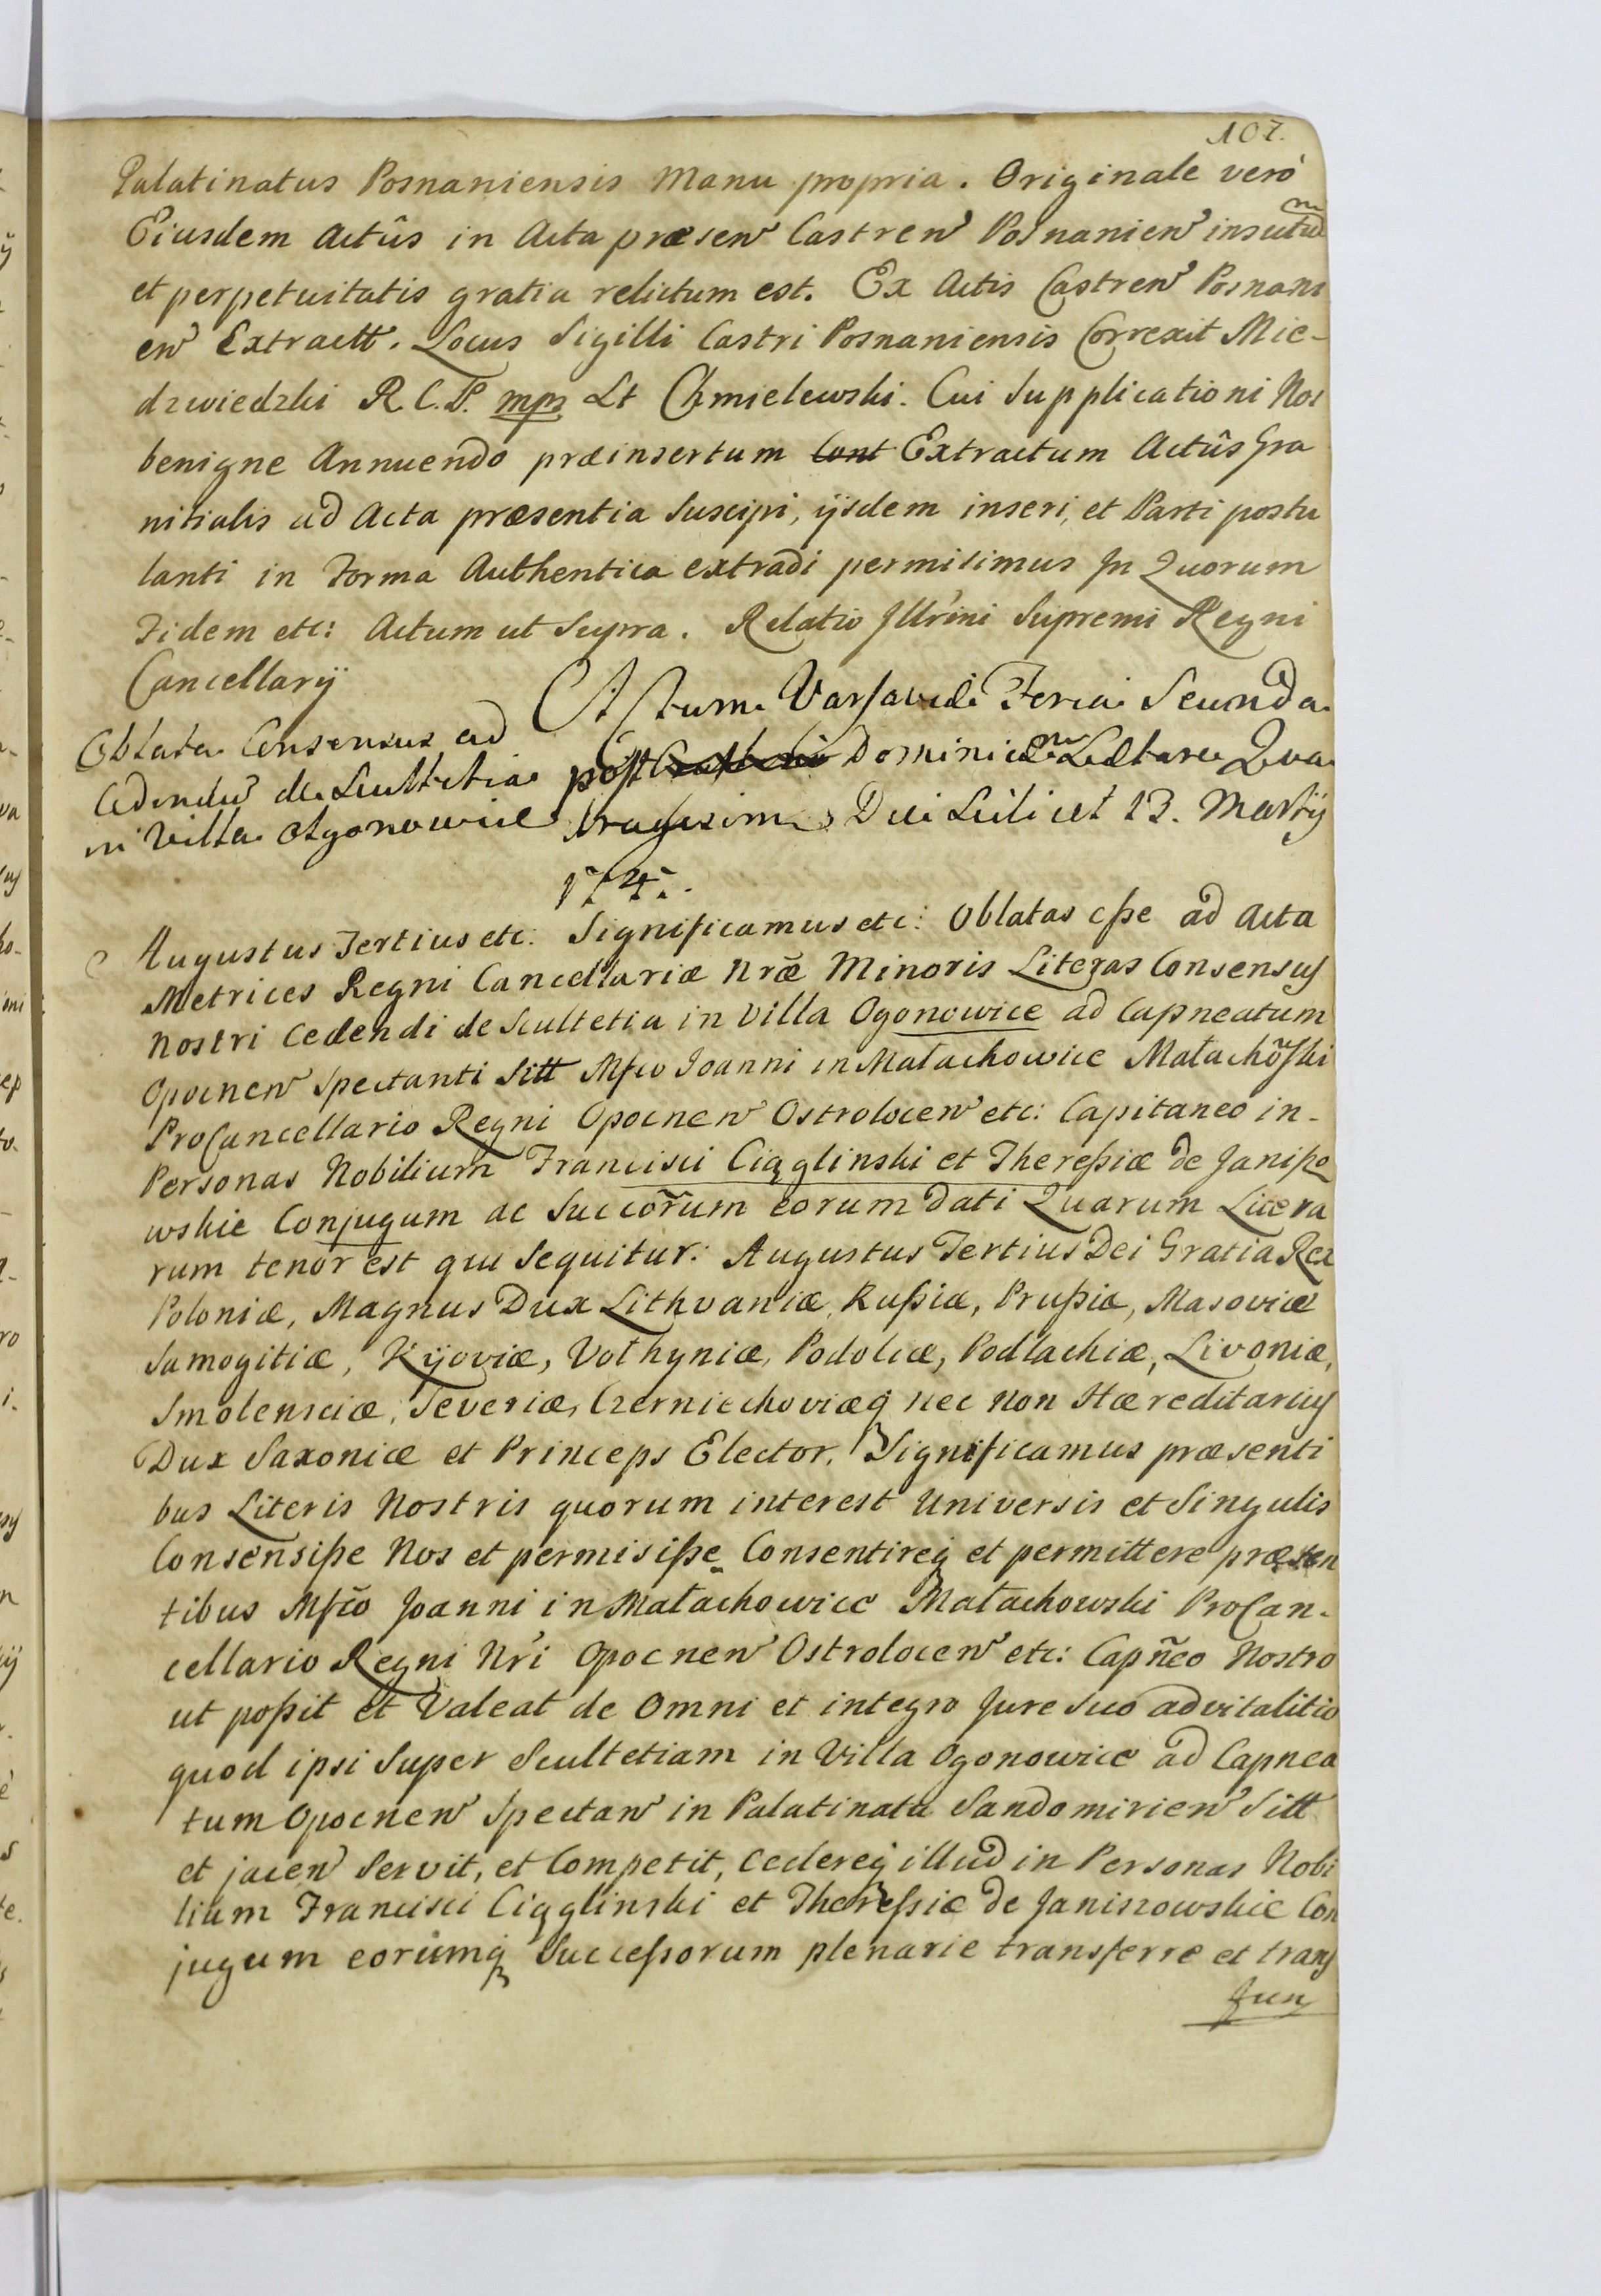 107.
Palatinatus Posnaniensis Manu propria. Originale verò
Eiusdem Actûs in Acta præsen Castren Posnanien insutum
et perpetuitatis gratia relictum est. Ex Actis Castren Posnani
en Extractt. Locus Sigilli Castri Posnaniensis Correxit Mie-
dzwiedzki R.C.P. mpp Lt Chmielewski. Cui Supplicationi Nos
benigne Annuendo præinsertum Cont Extractum Actûs Gra
nitialis ad Acta præsentia Suscipi, ijsdem inseri, et Parti postu
lanti in Forma Authentica extradi permisimus In Quorum
Fidem etc: Actum ut Supra. Relatio Illr̃mi Supremi Regni
Cancellarij
Oblata Consensus ad
Cedendũ de Scultetia
in Villa Ogonowice
Actum Varsaviæ Feria Secunda
post Dominicam Lætare Qua
dragesimæ Die Scilicet 13. Martij
1747.
Augustus Tertius etc: Significamus etc: Oblatas esse ad Acta
Metrices Regni Cancellariæ Nræ̃ Minoris Literas Consensus
Nostri Cedendi de Scultetia in Villa Ogonowice ad Capneatum
Opocnen Spectanti Sitt Mfco Joanni in Małachowice Małachõski
ProCancellario Regni Opocnen Ostrolocen etc: Capitaneo in-
Personas Nobilium Francisci Ciągliński et Theressiæ de Janiszo
wskie Conjugum ac Succõrum eorum dati Quarum Litera
rum tenor est qui Sequitur: Augustus Tertius Dei Gratia Rex
Poloniæ, Magnus Dux Lithvaniæ, Russiæ, Prussiæ, Masoviæ
Samogitiæ, Kijoviæ, Volhyniæ, Podoliæ, Podlachiæ, Livoniæ,
Smolensciæ, Severiæ, Czerniechoviæq nec non Hæreditarius
Dux Saxoniæ et Princeps Elector. Significamus præsenti
bus Literis Nostris quorum interest Universis et Singulis
Consensisse Nos et permisisse Consentireq et permittere præsen
tibus Mfco Joanni in Małachowice Małachowski ProCan-
cellario Regni Nr̃i Opocnen Ostrolocen etc: Capñeo Nostro
ut possit et Valeat de Omni et integro Jure Suo advitalitio
quod ipsi Super Scultetiam in Villa Ogonowice ad Capnea
tum Opocnen Spectan in Palatinatu Sandomirien Sitt
et jacen Servit, et Competit, Cedereq illud in Personas Nobi
lium Francisci Ciągliński et Theressiæ de Janiszowskie Con
jugum eorumq Successorum plenarie transferre et trans
fun